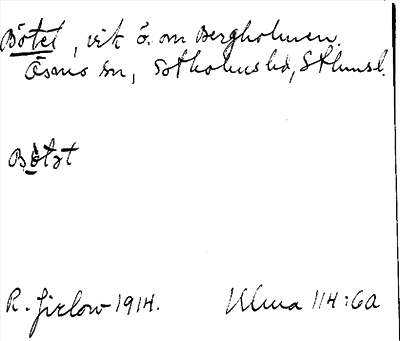 Bötet, vik ö. om Bergholmen.
Ösmo sn, Sotholms hd, Sthlms l.
Bötət
R. Jirlow 1914.
Ulma 114:6a